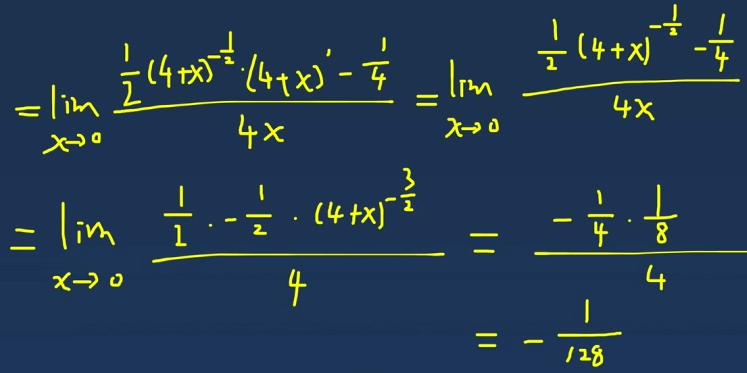 = lim_{x→0} \frac{\frac{1}{2}(4+x)^{-\frac{1}{2}}·(4+x)' - \frac{1}{4}}{4x} = lim_{x→0} \frac{\frac{1}{2}(4+x)^{-\frac{1}{2}} - \frac{1}{4}}{4x}
= lim_{x→0} \frac{\frac{1}{2}·-\frac{1}{2}·(4+x)^{-\frac{3}{2}}}{4} = \frac{-\frac{1}{4}·\frac{1}{8}}{4}
= -\frac{1}{128}